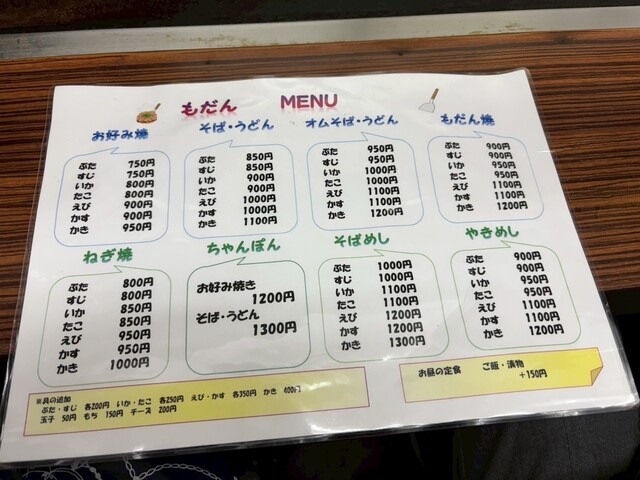 もだん MENU
お好み焼
ぶた 750円
すじ 750円
いか 800円
たこ 800円
えび 900円
かす 900円
かき 950円
そば・うどん
ぶた 850円
すじ 850円
いか 900円
たこ 900円
えび 1000円
かす 1000円
かき 1100円
オムそば・うどん
ぶた 950円
すじ 950円
いか 1000円
たこ 1000円
えび 1100円
かす 1100円
かき 1200円
もだん焼
ぶた 900円
すじ 900円
いか 950円
たこ 950円
えび 1100円
かす 1100円
かき 1200円
ねぎ焼
ぶた 800円
すじ 800円
いか 850円
たこ 850円
えび 950円
かす 950円
かき 1000円
ちゃんぽん
お好み焼き
1200円
そば・うどん
1300円
そばめし
ぶた 1000円
すじ 1000円
いか 1100円
たこ 1100円
えび 1200円
かす 1200円
かき 1300円
やきめし
ぶた 900円
すじ 900円
いか 950円
たこ 950円
えび 1100円
かす 1100円
かき 1200円
※具の追加
ぶた・すじ 各200円 いか・たこ 各250円 えび・かす 各350円 かき 400円
玉子 50円 もち 150円 チーズ 200円
お昼の定食 ご飯・漬物
+150円